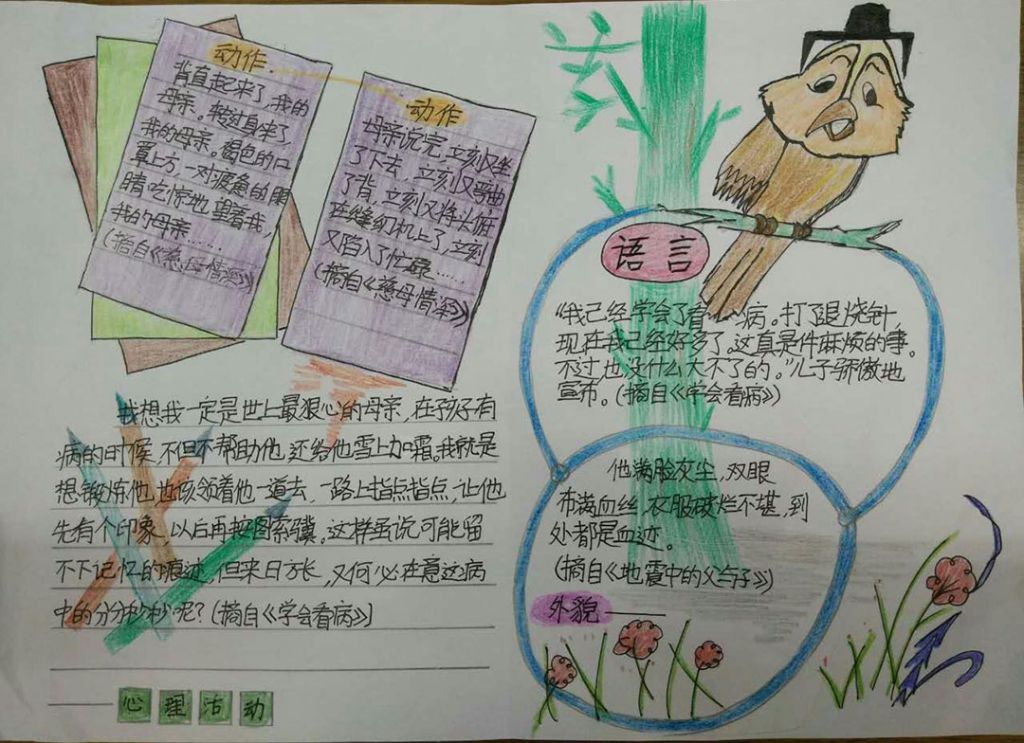 动作
背直起来了,我的
母亲。转过身来了,
我的母亲。褐色的口
罩上方,一对疲惫的眼
睛吃惊地望着我,
我的母亲……
(摘自《慈母情深》)
动作
母亲说完,立刻又坐
了下去,立刻又弯曲
了背,立刻又将头俯
在缝纫机上了,立刻
又陷入了忙碌……
(摘自《慈母情深》)
我想我一定是世上最狠心的母亲,在孩子有
病的时候,不但不帮助他,还给他雪上加霜。我就是
想锻炼他,也该领着他一道去,一路上指点指点,让他
先有个印象,以后再按图索骥。这样虽说可能留
不下记忆的痕迹,但来日方长,又何必在意这病
中的分分秒秒呢?(摘自《学会看病》)
心理活动
语言
“我已经学会了看 病。打了退烧针,
现在我已经好多了。这真是件麻烦的事。
不过,也没什么大不了的。”儿子骄傲地
宣布。(摘自《学会看病》)
他满脸灰尘,双眼
布满血丝,衣服破烂不堪,到
处都是血迹。
(摘自《地震中的父与子》)
外貌